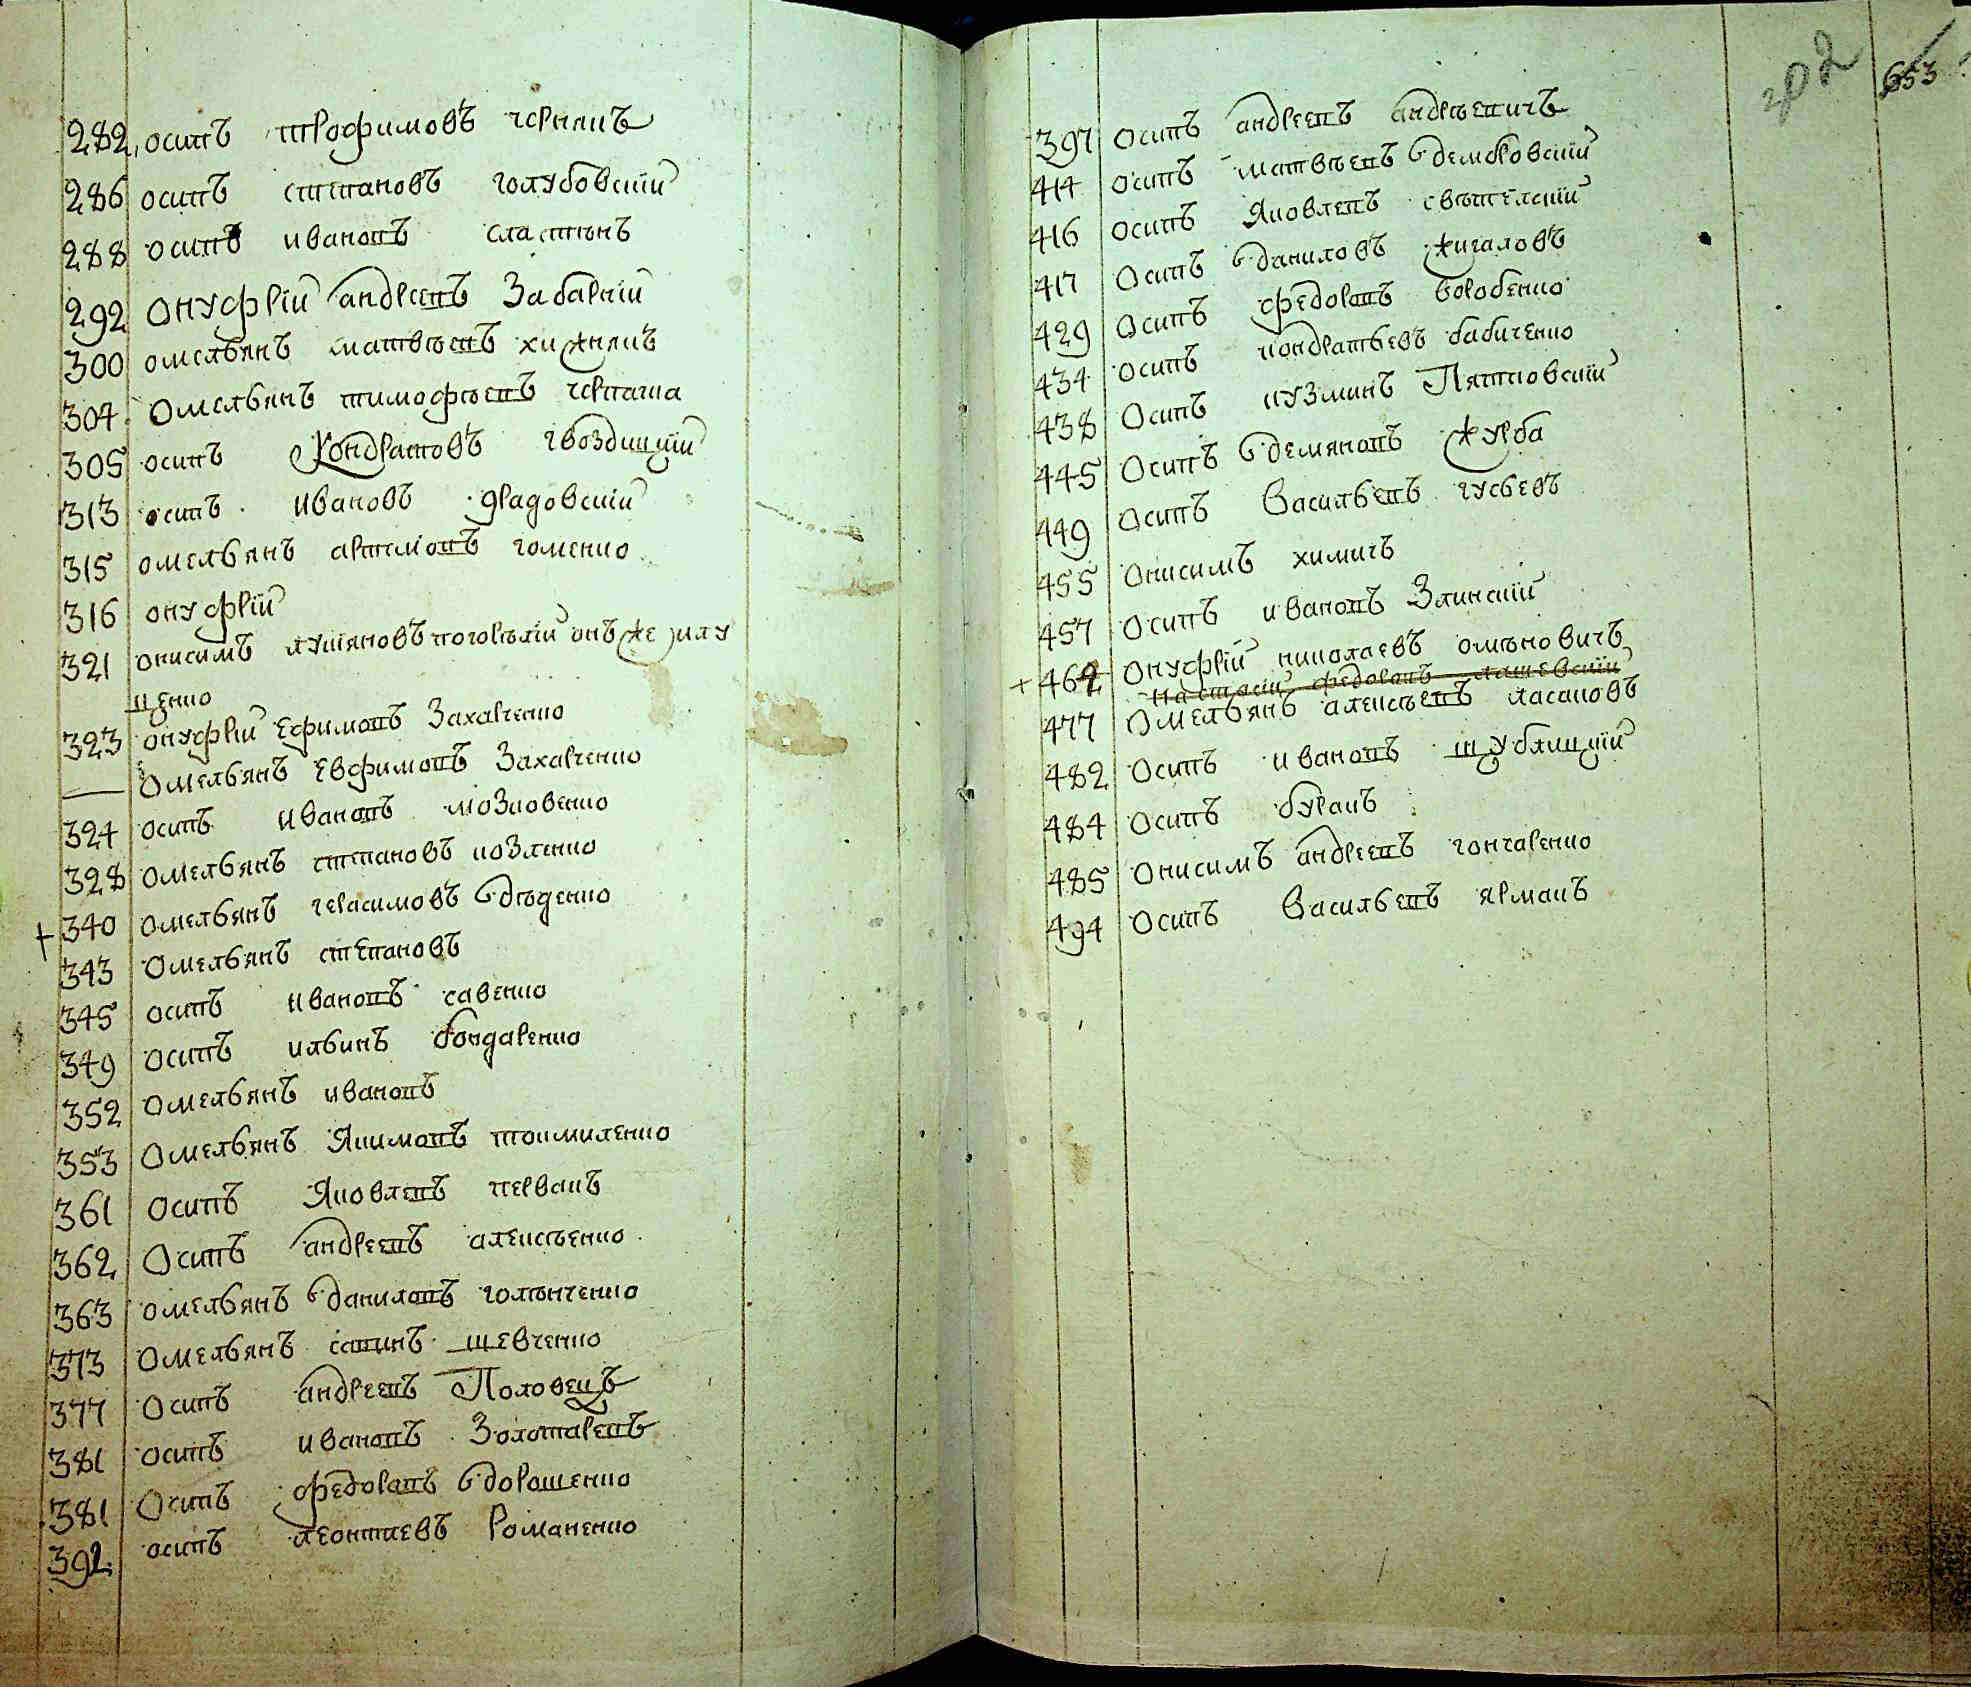 282 осипъ трофимовъ чернякъ
286 осипъ степановъ голубовскій
288 осипъ ивановъ сластѣнъ
292 онуфрій андреевъ Забарній
300 омельянъ матвѣевъ хижнякъ
304 Омельянъ тимофѣевъ черпаша
305 осипъ Кондратовъ гвоздицкій
313 осипъ ивановъ градовскій
315 омельянъ артемовъ гоменко
316 онуфрій
321 онисимъ лукяновъ погорѣлій онъ же илу
щенко
323 онуфрій Ефимовъ Захарченко
Омельянъ Евфимовъ Захарченко
324 осипъ ивановъ мозновенко
328 омельянъ степановъ козленко
340 омельянъ герасимовъ дѣденко
343 Омельянъ степановъ
345 осипъ ивановъ савенко
349 осипъ ильинъ бондаренко
352 Омельянъ ивановъ
353 Омельянъ Якимовъ токмиленко
361 осипъ Яковлевъ первакъ
362 Осипъ андреевъ алексѣенко
363 омельянъ даниловъ голѣнченко
373 Омельянъ савинъ шевченко
377 Осипъ андреевъ Половецъ
381 осипъ ивановъ Золотаревъ
381 Осипъ федоровъ дорошенко
392 осипъ леонтиевъ Романенко
202 653
397 Осипъ андреевъ андрѣевичъ
414 Осипъ матвѣевъ демковскій
416 осипъ Яковлевъ свѣтелскій
417 Осипъ даниловъ жигаловъ
429 Осипъ федоровъ воробенко
434 осипъ кондратьевъ бабиченко
438 Осипъ кузминъ Пятковскій
445 Осипъ демяновъ журба
449 Осипъ Васильевъ гусьевъ
455 Онисимъ химичъ
457 Осипъ ивановъ Злинскій
462 Онуфрій николаевъ омѣновичъ
Настасій федоровъ лашевскій
477 Омельянъ алексѣевъ ласановъ
482 Осипъ ивановъ шублицкій
484 Осипъ буракъ
485 Онисимъ андреевъ гончаренко
494 Осипъ Васильевъ ярмакъ